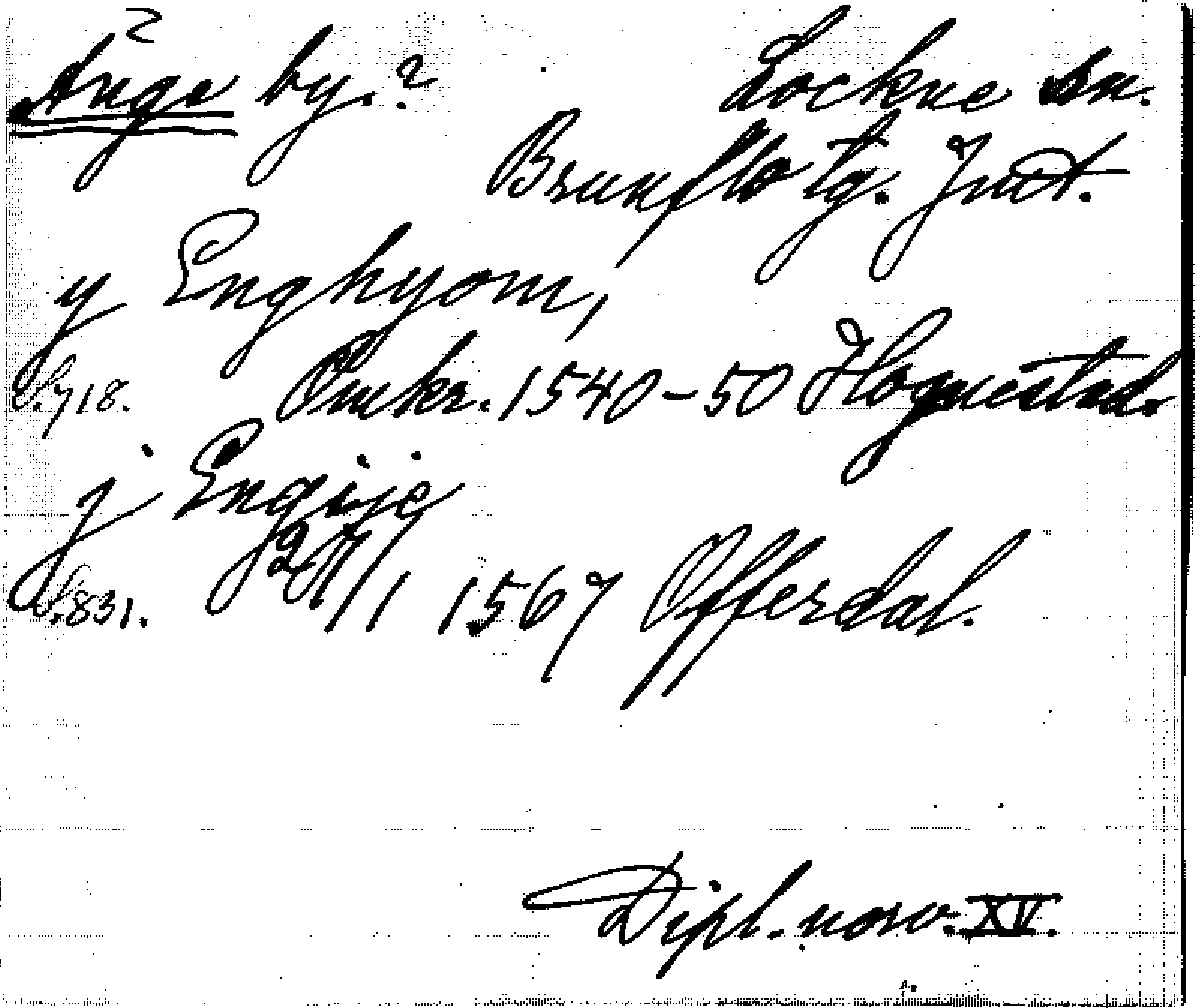 Ånge by.? Lockne sn.
Brunflo tg. Jmt.
y Enghyom,
S.718. Omkr. 1540-50 Hognestad.
j Engiie
S.831. 20/1 1567 Offerdal.
Dipl. norv. XV.